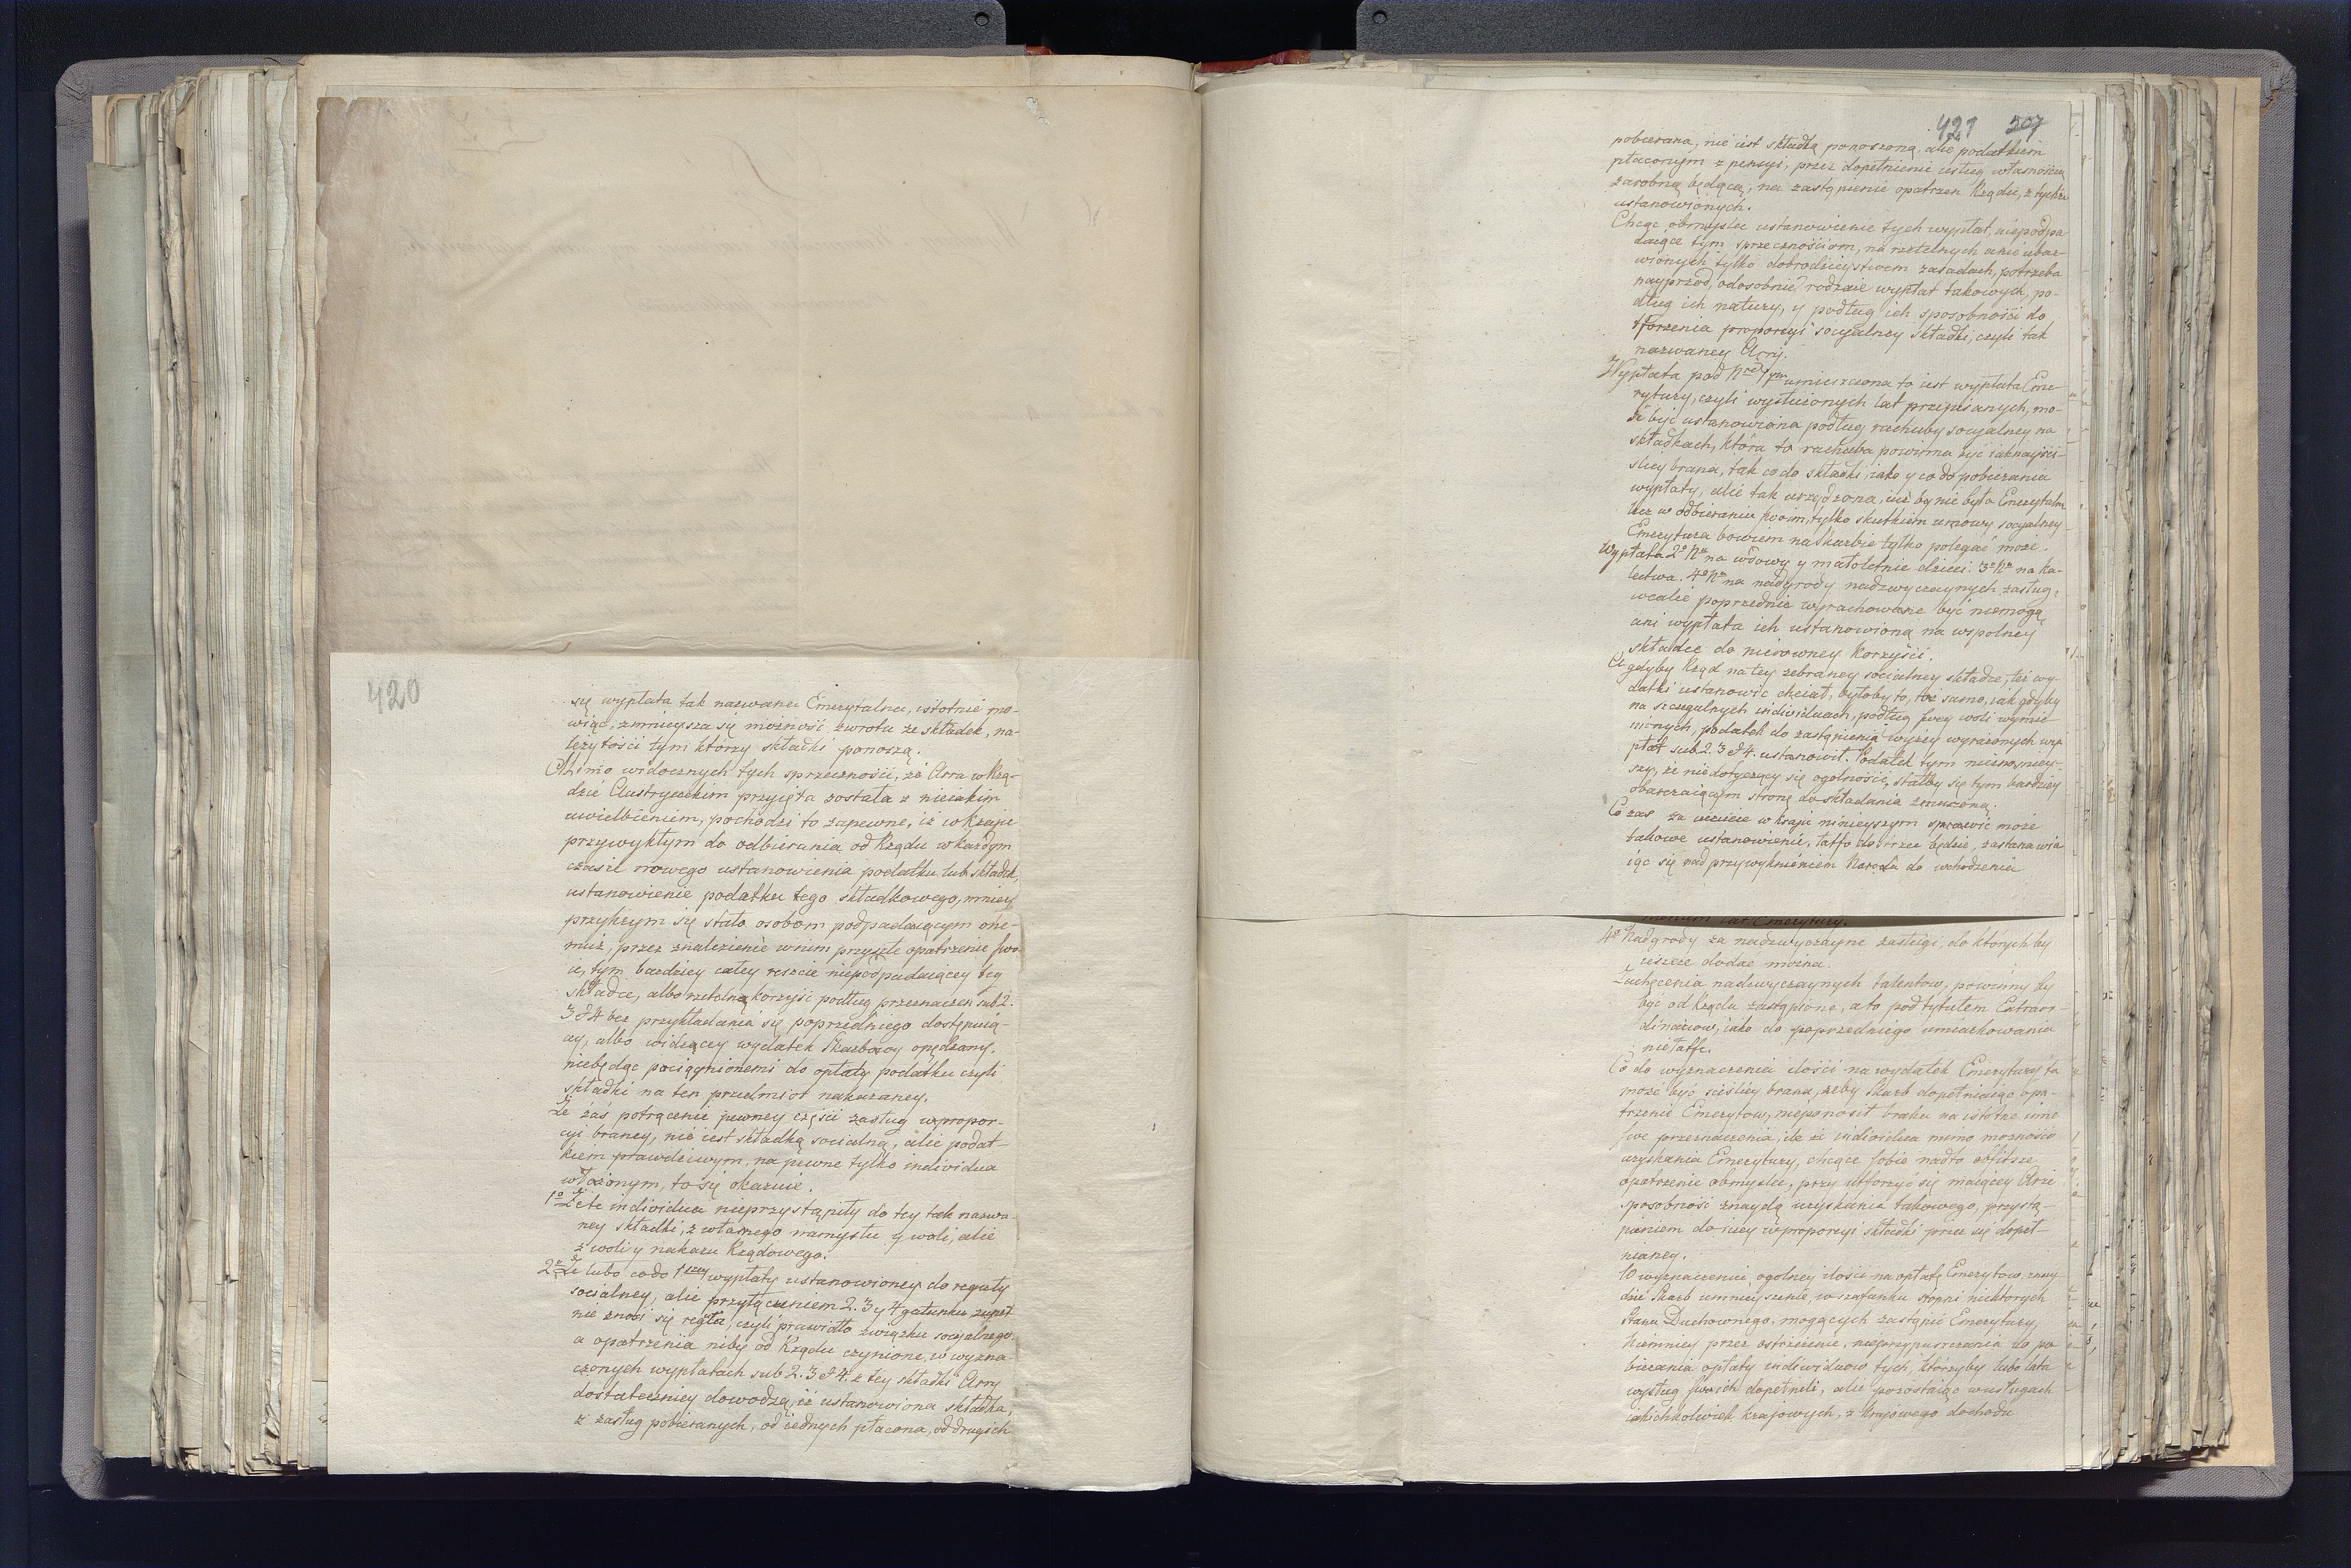 420
się wypłata tak nazwana Emerytalna, istotnie mo-
wiąc, zmnieysza się możność zwrotu ze składek, na-
leżytości tym którzy składki ponoszą.
Mimo widocznych tych sprzeczności, że Arra w Rzą-
dzie Austryackim przyięta została z nieiakim
uwielbieniem, pochodzi to zapewne, iż w kraiu
przywykłym do odbierania od Rządu w każdym
czasie nowego ustanowienia podatku lub składek,
ustanowienie podatku tego składkowego, mniey
przykrym się stało osobom podpadaiącym one-
muż, przez znalezienie w nim przyszłe opatrzenie swo-
ie, tym bardziey całey reszcie niepodpadaiącey tey
składce, albo rzetelną korzyść podług przeznaczeń sub 2.
3 & 4 bez przykładania się poprzedniego dostępuią-
cy, albo widzącey wydatek Skarbowy opędzany,
niebędąc pociągnionemi do opłaty podatku czyli
składki na ten przedmiot nakazaney.
Że zaś potrącenie pewney części zasług w propor-
cyi braney, nie iest składką socialną, ale podat-
kiem prawdziwym, na pewne tylko individua
włożonym, to się okazuie.
1o Że te individua nieprzystąpiły do tey tak nazwa-
ney składki, z własnego namysłu y woli, ale
z woli y nakazu Rządowego.
2o Że lubo co do 1szey wypłaty ustanowioney do reguły
socialney, ale przyłączeniem 2. 3 y 4 gatunku zupeł
nie znosi się reguła, czyli prawidło związku socyalnego,
a opatrzenia niby od Rządu czynione, w wyzna-
czonych wypłatach sub 2. 3 & 4. z tey składki Arry
dostateczniey dowodzą, iż ustanowiona składka,
z zasług pobieranych, od iednych płacona, od drugich
421 207
pobierana, nie iest składką ponoszoną, ale podatkiem
płaconym z pensyi, przez dopełnienie usług własnością
zarobną będącą, na zastąpienie opatrzeń Rządu, z tychże
ustanowionych.
Chcąc obmyslić ustanowienie tych wypłat, niepodpa
daiące tym sprzecznościom, na rzetelnych a nie ubar-
wionych tylko dobrodzieystwem zasadach, potrzeba
nayprzod, odosobnić rodzaie wypłat takowych, po-
dług ich natury, y podług ich sposobności do
tforzenia proporcyi socyalney składki, czyli tak
nazwaney Arry.
Wypłata pod Nrem 1ym umieszczona to iest wypłata Eme-
rytury, czyli wysłużonych lat przepisanych, mo-
że być ustanowiona podług rachuby socyalney na
składkach, która to rachuba powinna być iaknayści-
śley brana, tak co do składki, iako y co do pobierania
wypłaty, ale tak urządzona, iuż by nie była Emerytalną
lecz w odbieraniu swoim, tylko skutkiem umowy socyalney
Emerytura bowiem na Skarbie tylko polegać może.
Wypłata 2o Nro na wdowy y małoletnie dzieci. 3o Nro na ka-
lectwa. 4o Nro na nadgrody nadzwyczaynych zasług,
wcale poprzednie wyrachowane być niemogą,
ani wypłata ich ustanowioną na wspolney
składce do nierowney korzyści.
A gdyby Rząd na tey zebraney socialney składce, też wy-
datki ustanowić chciał, byłoby to, toż samo, iak gdyby
na szczegulnych individuach, podług swey woli wymie
nionych, podatek do zastąpienia wyżey wyrażonych wy-
płat sub 2. 3 & 4. ustanowił. Podatek tym nieznośniey-
szy, że niedotyczący się ogolności, stałby się tym bardziey
obarczaiącym stronę do składania zmuszoną.
Co zas za wrażenie w kraju ninieyszym sprawić może
takowe ustanowienie, łatfo dostrzec będzie, zastanawia
iąc się nad przywyknieniem Narodu do wchodzenia
lat Emerytury.
4o Nadgrody za nadzwyczayne zasługi, do których by
ieszcze dodać można.
Zachęcenia nadzwyczaynych talentow, powinny by
być od Rządu zastąpione, a to pod tytułem Extraor-
dinariow, iako do poprzedniego umiarkowania
niełatfe.
Co do wyznaczenia ilości na wydatek Emerytury, ta
może być ściśley brana, żeby Skarb dopełniaiąc opa-
trzenie Emerytow, nieponosił braku na istotne inne
swe przeznaczenia, ile że individua mimo możności
uzyskania Emerytury, chcące sobie nadto obfitsze
opatrzenie obmyslić, przy utforzyć się maiącey Arze
sposobność znaydą uzyskania takowego, przystą-
pieniem do niey w proporcyi składki przez się dopeł-
nianey.
W wyznaczeniu ogolney ilości na opłatę Emerytow, znay
dzie Skarb umnieyszenie, w szafunku stopni niektorych
Stanu Duchownego, mogących zastąpić Emerytury,
Niemniey przez ostrzeżenie, nieprzypuszczania do po
bierania opłaty individuow tych, którzyby lubo lata
wysług swoich dopełnili, ale pozostaiąc w usługach
iakichkolwiek krajowych, z krajowego dochodu